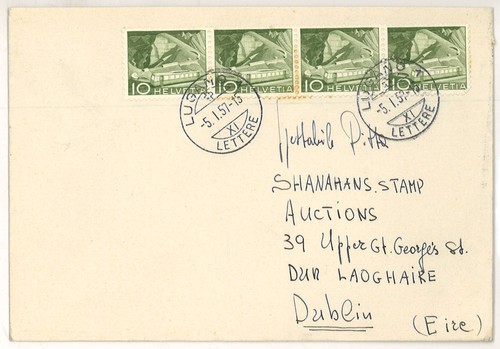 10 HELVETIA 10 HELVETIA 10 HELVETIA 10 HELVETIA
LUGANO 1
-5.1.57-15
XI
LETTERE
LUGANO 1
-5.1.57-15
XI
LETTERE
Spettabile Ditta
SHANAHANS.STAMP
AUCTIONS
39 Upper Gt. Georges St.
DUN LAOGHAIRE
Dublin
(Eire)